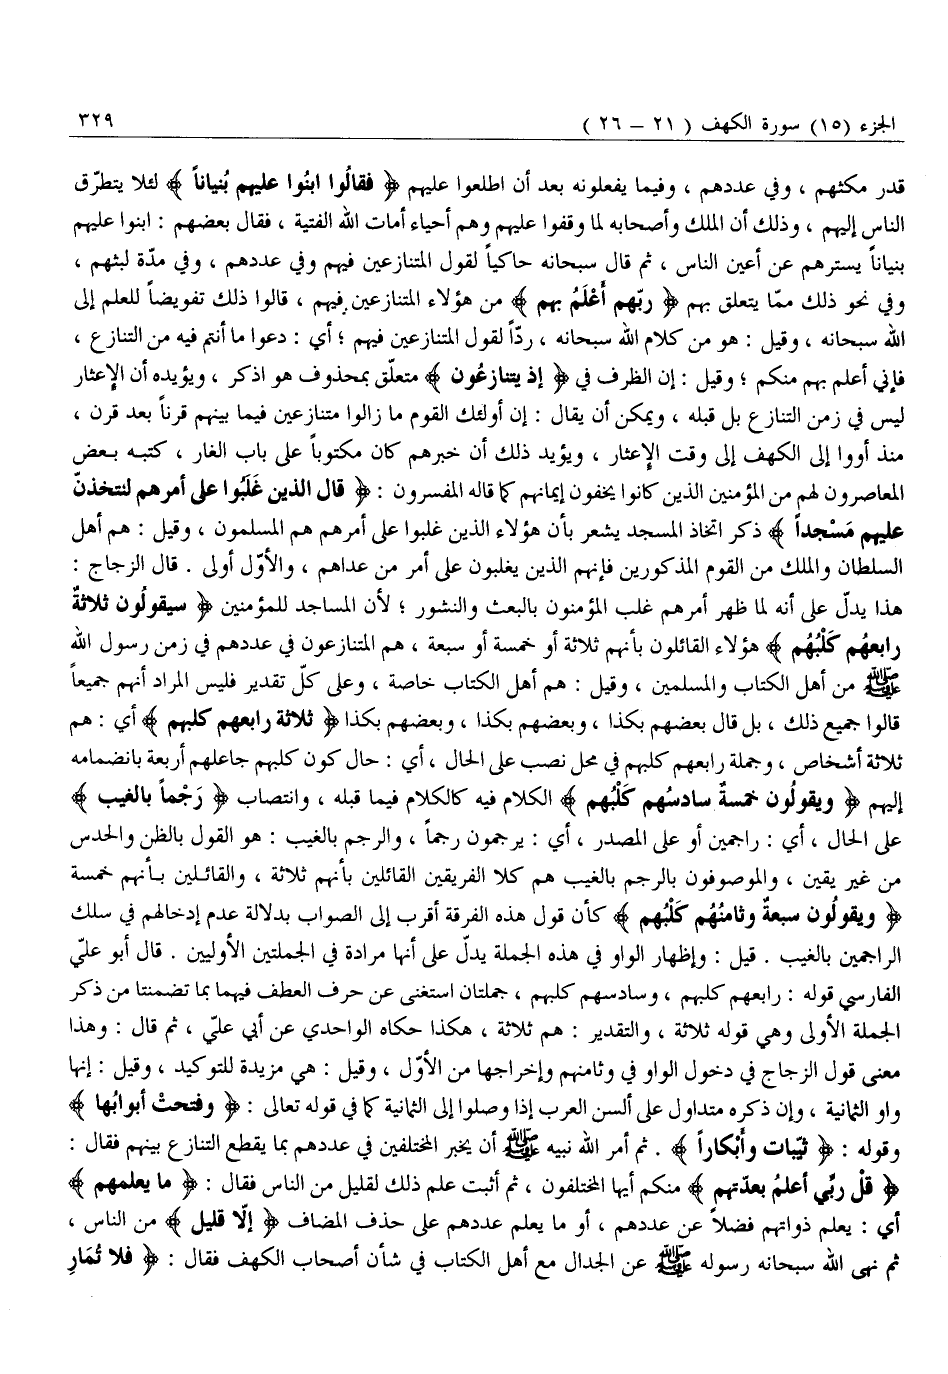 الجزء (١٥) سورة الكهف ( ٢١ – ٢٦ ) ٣٢٩
قدر مكثهم ، وفي عددهم ، وفيما يفعلونه بعد أن اطلعوا عليهم ﴿ فقالُوا ابنُوا عليهم بُنياناً ﴾ لئلا يتطرّق
الناس إليهم ، وذلك أن الملك وأصحابه لما وقفوا عليهم وهم أحياء أمات الله الفتية ، فقال بعضهم : ابنوا عليهم
بنياناً يسترهم عن أعين الناس ، ثم قال سبحانه حاكياً لقول المتنازعين فيهم وفي عددهم ، وفي مدّة لبثهم ،
وفي نحو ذلك ممّا يتعلق بهم ﴿ ربّهم أَعْلَمُ بهم ﴾ من هؤلاء المتنازعين فيهم ، قالوا ذلك تفويضاً للعلم إلى
الله سبحانه ، وقيل : هو من كلام الله سبحانه ، ردّاً لقول المتنازعين فيهم ؛ أي : دعوا ما أنتم فيه من التنازع ،
فإني أعلم بهم منكم ؛ وقيل : إن الظرف في ﴿ إذ يتنازعُون ﴾ متعلّق بمحذوف هو اذكر ، ويؤيده أن الإعثار
ليس في زمن التنازع بل قبله ، ويمكن أن يقال : إن أولئك القوم ما زالوا متنازعين فيما بينهم قرناً بعد قرن ،
منذ أووا إلى الكهف إلى وقت الإعثار ، ويؤيد ذلك أن خبرهم كان مكتوباً على باب الغار ، كتبه بعض
المعاصرون لهم من المؤمنين الذين كانوا يخفون إيمانهم كما قاله المفسرون : ﴿ قال الذين غَلَبُوا على أمرهم لنتخذنّ
عليهم مَسْجداً ﴾ ذكر اتخاذ المسجد يشعر بأن هؤلاء الذين غلبوا على أمرهم هم المسلمون ، وقيل : هم أهل
السلطان والملك من القوم المذكورين فإنهم الذين يغلبون على أمر من عداهم ، والأوّل أولى . قال الزجاج :
هذا يدلّ على أنه لما ظهر أمرهم غلب المؤمنون بالبعث والنشور ؛ لأن المساجد للمؤمنين ﴿ سيقولُون ثلاثةٌ
رابعهُم كَلْبُهُم ﴾ هؤلاء القائلون بأنهم ثلاثة أو خمسة أو سبعة ، هم المتنازعون في عددهم في زمن رسول الله
ﷺ من أهل الكتاب والمسلمين ، وقيل : هم أهل الكتاب خاصة ، وعلى كلّ تقدير فليس المراد أنهم جميعاً
قالوا جميع ذلك ، بل قال بعضهم بكذا ، وبعضهم بكذا ، وبعضهم بكذا ﴿ ثلاثة رابعهم كلبهم ﴾ أي : هم
ثلاثة أشخاص ، وجملة رابعهم كلبهم في محل نصب على الحال ، أي : حال كون كلبهم جاعلهم أربعة بانضمامه
إليهم ﴿ ويقولُون خمسةٌ سادسُهم كَلْبُهم ﴾ الكلام فيه كالكلام فيما قبله ، وانتصاب ﴿ رَجْماً بالغيب ﴾
على الحال ، أي : راجمين أو على المصدر ، أي : يرجمون رجماً ، والرجم بالغيب : هو القول بالظن والحدس
من غير يقين ، والموصوفون بالرجم بالغيب هم كلا الفريقين القائلين بأنهم ثلاثة ، والقائلين بأنهم خمسة
﴿ ويقولُون سبعةٌ وثامنُهُم كَلْبُهم ﴾ كأن قول هذه الفرقة أقرب إلى الصواب بدلالة عدم إدخالهم في سلك
الراجمين بالغيب . قيل : وإظهار الواو في هذه الجملة يدلّ على أنها مرادة في الجملتين الأوليين . قال أبو عليّ
الفارسي قوله : رابعهم كلبهم ، وسادسهم كلبهم ، جملتان استغنى عن حرف العطف فيهما بما تضمنتا من ذكر
الجملة الأولى وهي قوله ثلاثة ، والتقدير : هم ثلاثة ، هكذا حكاه الواحدي عن أبي عليّ ، ثم قال : وهذا
معنى قول الزجاج في دخول الواو في وثامنهم وإخراجها من الأوّل ، وقيل : هي مزيدة للتوكيد ، وقيل : إنها
واو الثمانية ، وإن ذكره متداول على ألسن العرب إذا وصلوا إلى الثمانية كما في قوله تعالى : ﴿ وفتحتْ أبوابُها ﴾
وقوله : ﴿ ثيّبات وأَبْكاراً ﴾ . ثم أمر الله نبيه ﷺ أن يخبر المختلفين في عددهم بما يقطع التنازع بينهم فقال :
﴿ قلْ ربِّي أعلمُ بعدّتهم ﴾ منكم أيها المختلفون ، ثم أثبت علم ذلك لقليل من الناس فقال : ﴿ ما يعلمهم ﴾
أي : يعلم ذواتهم فضلاً عن عددهم ، أو ما يعلم عددهم على حذف المضاف ﴿ إلّا قليل ﴾ من الناس ،
ثم نهى الله سبحانه رسوله ﷺ عن الجدال مع أهل الكتاب في شأن أصحاب الكهف فقال : ﴿ فلا تُمَارِ